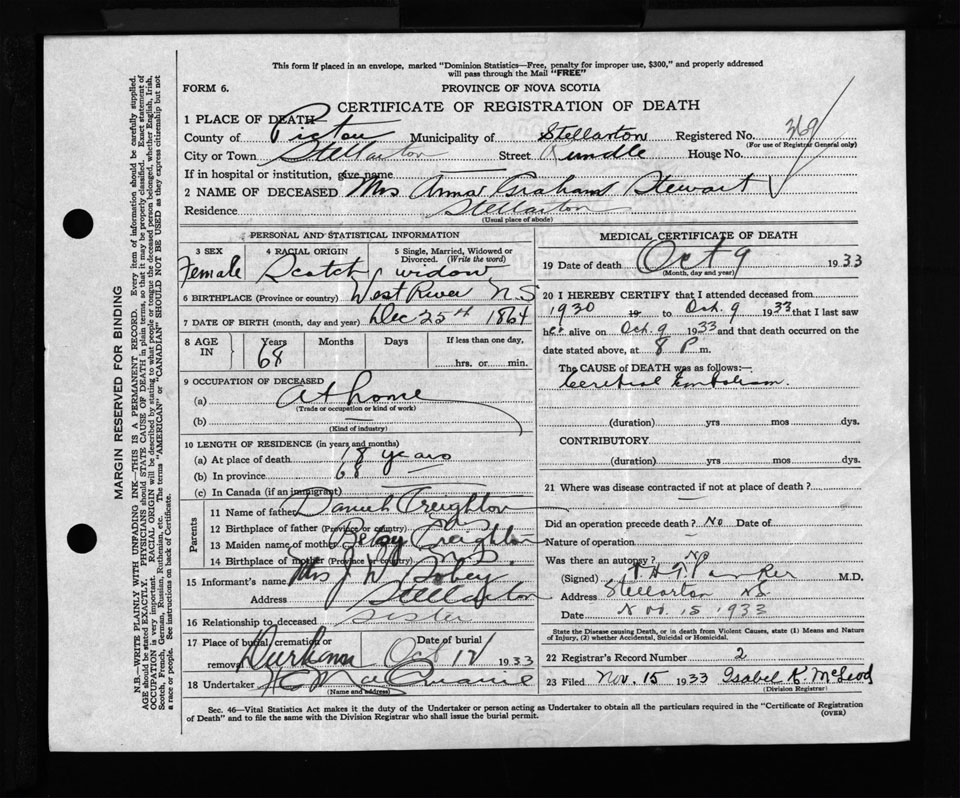 This form if placed in an envelope, marked "Dominion Statistics—Free, penalty for improper use, $300," and properly addressed
will pass through the Mail "FREE"
FORM 6.
PROVINCE OF NOVA SCOTIA
CERTIFICATE OF REGISTRATION OF DEATH
1 PLACE OF DEATH
County of Pictou Municipality of Stellarton Registered No.
(For use of Registrar General only)
City or Town Stellarton Street Rundle House No.
If in hospital or institution, give name
2 NAME OF DECEASED Mrs Anna Graham Stewart
Residence Stellarton
(Usual place of abode)
PERSONAL AND STATISTICAL INFORMATION
3 SEX Female
4 RACIAL ORIGIN Scotch
5 Single, Married, Widowed or Divorced. (Write the word) widow
6 BIRTHPLACE (Province or country) West River N.S
7 DATE OF BIRTH (month, day and year) Dec 25th 1864
8 AGE IN Years 68 Months Days If less than one day, hrs. or min.
9 OCCUPATION OF DECEASED
(a) At home
(Trade or occupation or kind of work)
(b) —
(Kind of industry)
10 LENGTH OF RESIDENCE (in years and months)
(a) At place of death 18 years
(b) In province 68 —
(c) In Canada (if an immigrant)
Parents
11 Name of father Daniel Creighton
12 Birthplace of father (Province or country) N.S
13 Maiden name of mother Betsy Creighton
14 Birthplace of mother (Province or country) N.S.
15 Informant's name Mrs J W Sobey
Address Stellarton
16 Relationship to deceased sister
17 Place of burial, cremation or removal Durham Date of burial Oct 12 1933
18 Undertaker
(Name and address)
MEDICAL CERTIFICATE OF DEATH
19 Date of death Oct 9 1933
(Month, day and year)
20 I HEREBY CERTIFY that I attended deceased from
1930 19 to Oct. 9 1933 that I last saw
her alive on Oct. 9 1933 and that death occurred on the
date stated above, at 8 P m.
The CAUSE of DEATH was as follows:—
Cerebral Embolism.
(duration) yrs mos dys.
CONTRIBUTORY
(duration) yrs mos dys.
21 Where was disease contracted if not at place of death?
—
Did an operation precede death? No Date of
Nature of operation —
Was there an autopsy? No
(Signed) M.D.
Address Stellarton NS
Date Nov. 15 1933
State the Disease causing Death, or in death from Violent Causes, state (1) Means and Nature
of Injury, (2) whether Accidental, Suicidal or Homicidal.
22 Registrar's Record Number 2
23 Filed Nov. 15 1933 Isabel K. McLeod
(Division Registrar)
Sec. 46—Vital Statistics Act makes it the duty of the Undertaker or person acting as Undertaker to obtain all the particulars required in the "Certificate of Registration
of Death" and to file the same with the Division Registrar who shall issue the burial permit. (OVER)
MARGIN RESERVED FOR BINDING
N.B.—WRITE PLAINLY WITH UNFADING INK—THIS IS A PERMANENT RECORD. Every item of information should be carefully supplied.
AGE should be stated EXACTLY. PHYSICIANS should STATE CAUSE OF DEATH in plain terms, so that it may be properly classified. Exact statement of
OCCUPATION is very important. RACIAL ORIGIN will be described by stating to what people or tongue the deceased person belonged, whether English, Irish,
Scotch, French, German, Russian, Ruthenian, etc. The terms "AMERICAN" or "CANADIAN" SHOULD NOT BE USED as they express citizenship but not
a race or people. See instructions on back of Certificate.